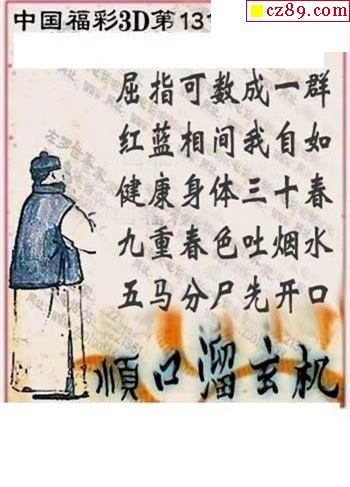 cz89.com
中国福彩3D第131
屈指可数成一群
红蓝相间我自如
健康身体三十春
九重春色吐烟水
五马分尸先开口
順口溜玄机